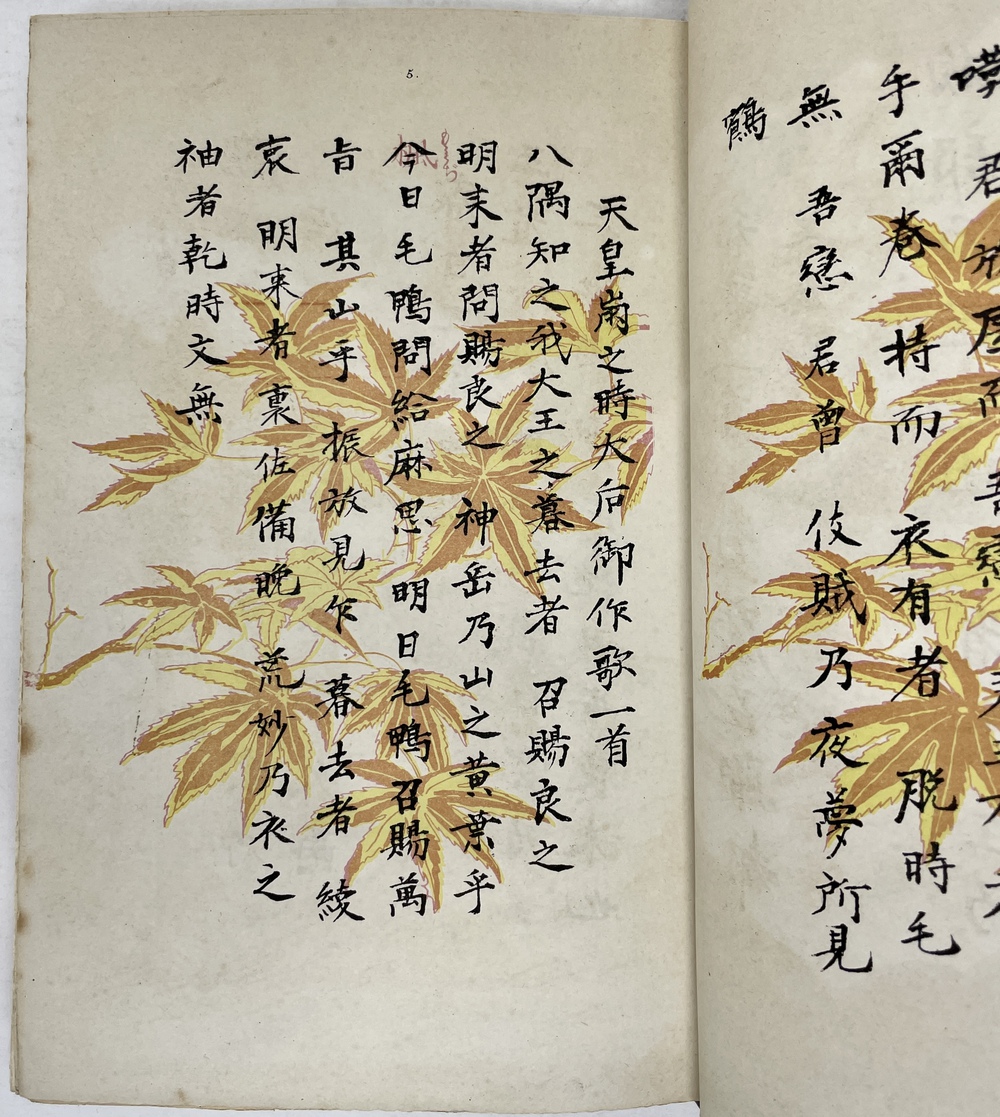 手爾巻 持而 衣有者 脱時毛
無 吾戀 君曾 伎賊乃夜夢所見
鶴
5.
天皇崩之時大后御作歌一首
八隅知之我大王之暮去者 召賜良之
明来者問賜良之 神岳乃山之黄葉乎
今日毛鴨問給麻思 明日毛鴨召賜萬
旨 其山乎 振放見乍 暮去者 續
哀 明来者 裏佐備晩 荒妙乃衣之
袖者乾時文無